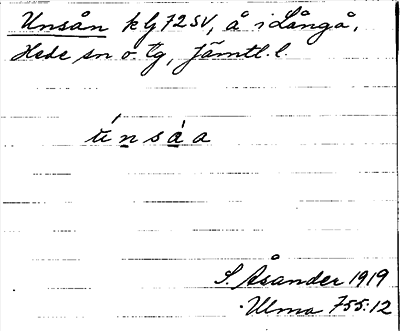 Unsån kg 72 SV, å i Långå,
Hede sn o. tg, Jämtl. l.
S. Åsander 1919
Ulma 755:12